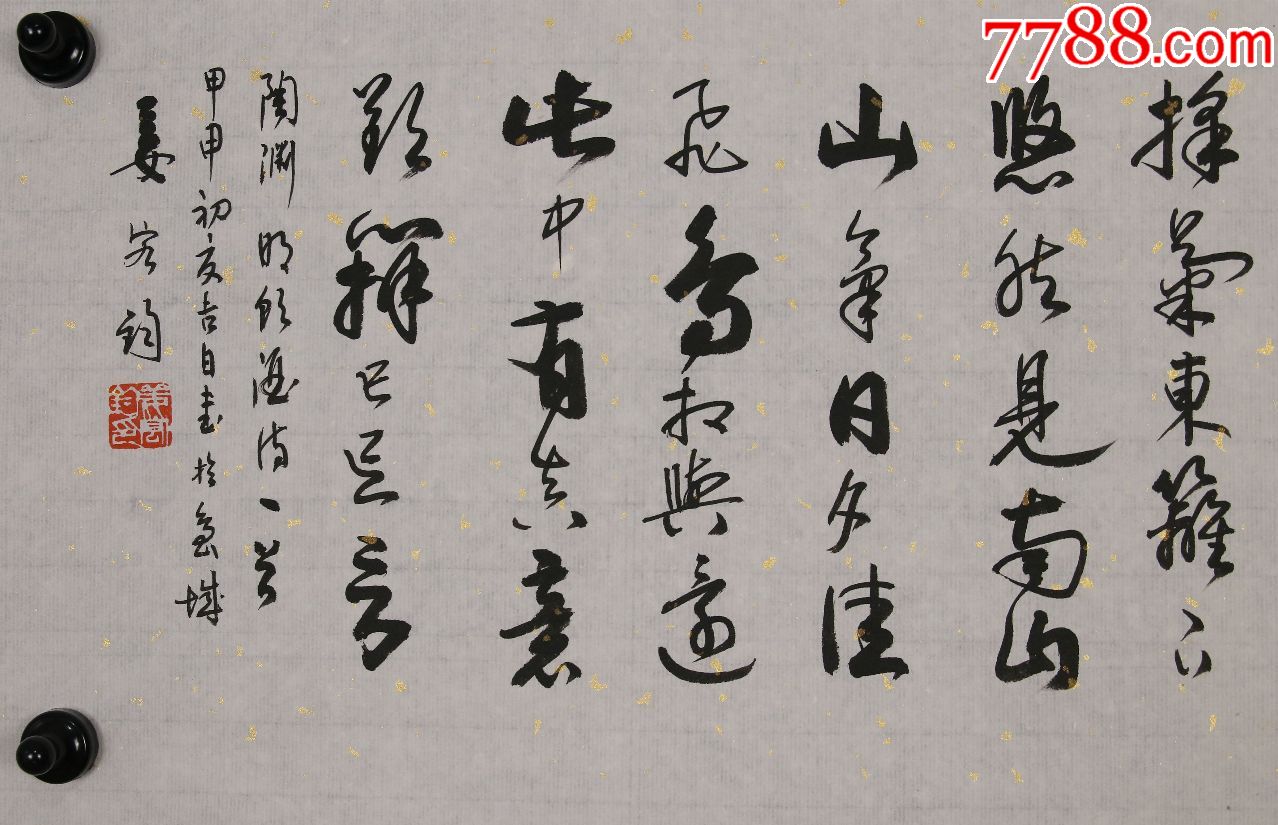 採菊東籬下
悠然見南山
山氣日夕佳
飛鳥相與還
此中有真意
欲辯已忘言
陶淵明飲酒詩一首
甲申初夏吉日書於
姜
7788.com